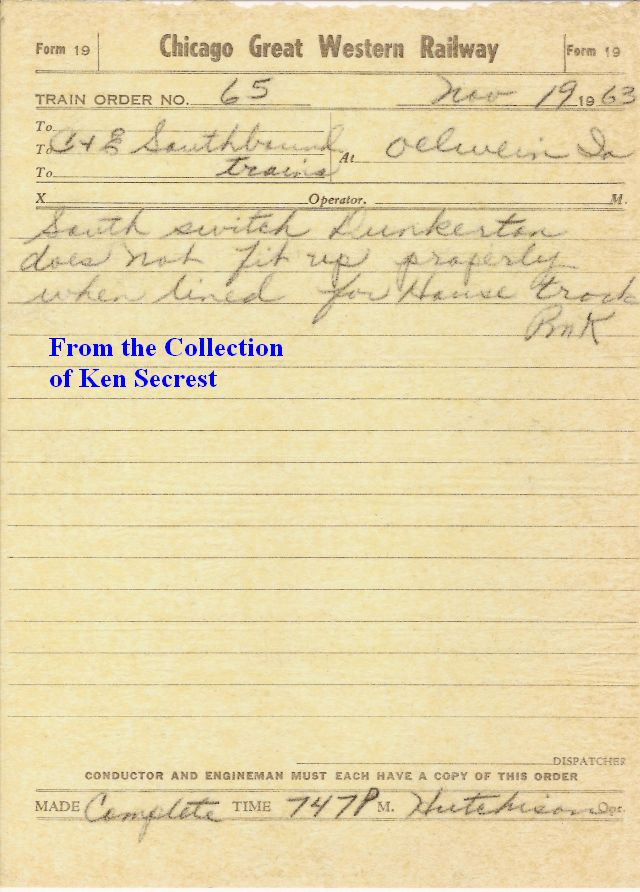 Form 19 Chicago Great Western Railway Form 19
TRAIN ORDER NO. 65 Nov 19 1963
To
To C+E Southbound At Oelwein Ia
To trains
X Operator. M.
South switch Dunkerton
does not fit up properly
when lined for House track
RMK
From the Collection
of Ken Secrest
DISPATCHER
CONDUCTOR AND ENGINEMAN MUST EACH HAVE A COPY OF THIS ORDER
MADE Complete TIME 747P M. Hutchison Opr.